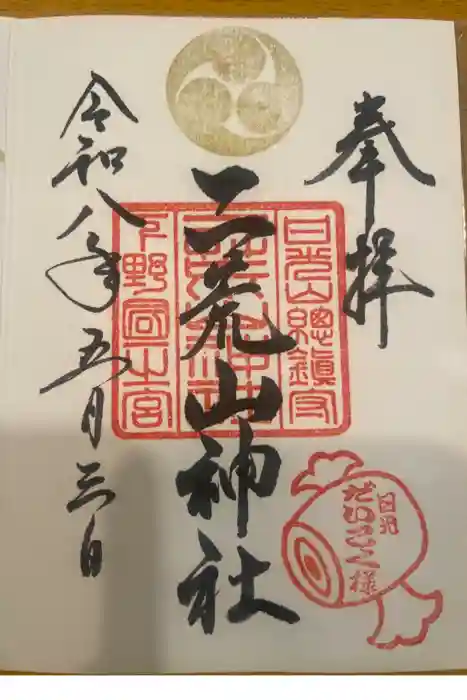 奉拝
日光山總鎮守
二荒山神社
下野國一宮
令和八年五月三日
日光
だいこく様